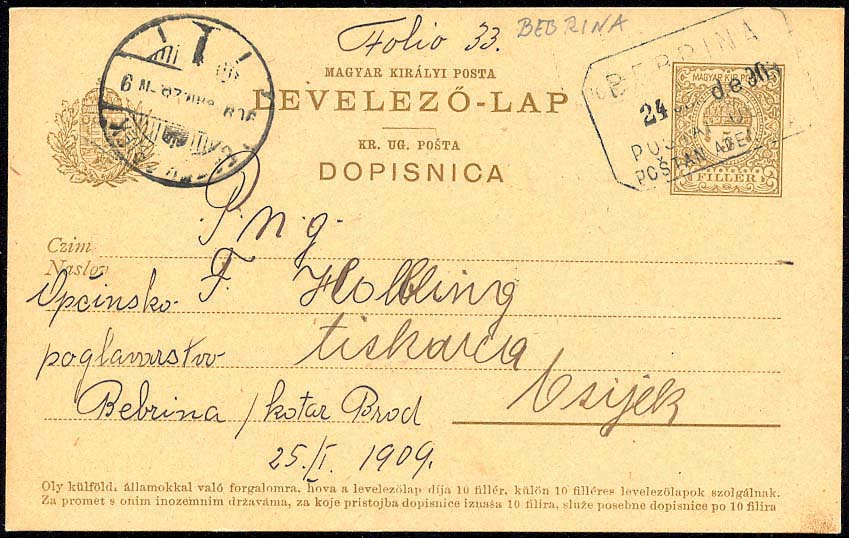 Folio 33. BEBRINA
MAGYAR KIRÁLYI POSTA
LEVELEZŐ-LAP
KR. UG. POŠTA
DOPISNICA
BEBRINA
24
MAGYAR KIR. POSTA
5
FILLÉR
P. n. g.
Czim
Naslov
F. Holbling
tiskarna
Osijek
Općinsko
poglavarstvo
Bebrina / kotar Brod
25./I. 1909.
Oly külföldi államokkal való forgalomra, hova a levelezőlap díja 10 fillér, külön 10 filléres levelezőlapok szolgálnak.
Za promet s onim inozemnim državama, za koje pristojba dopisnice iznaša 10 filira, služe posebne dopisnice po 10 filira